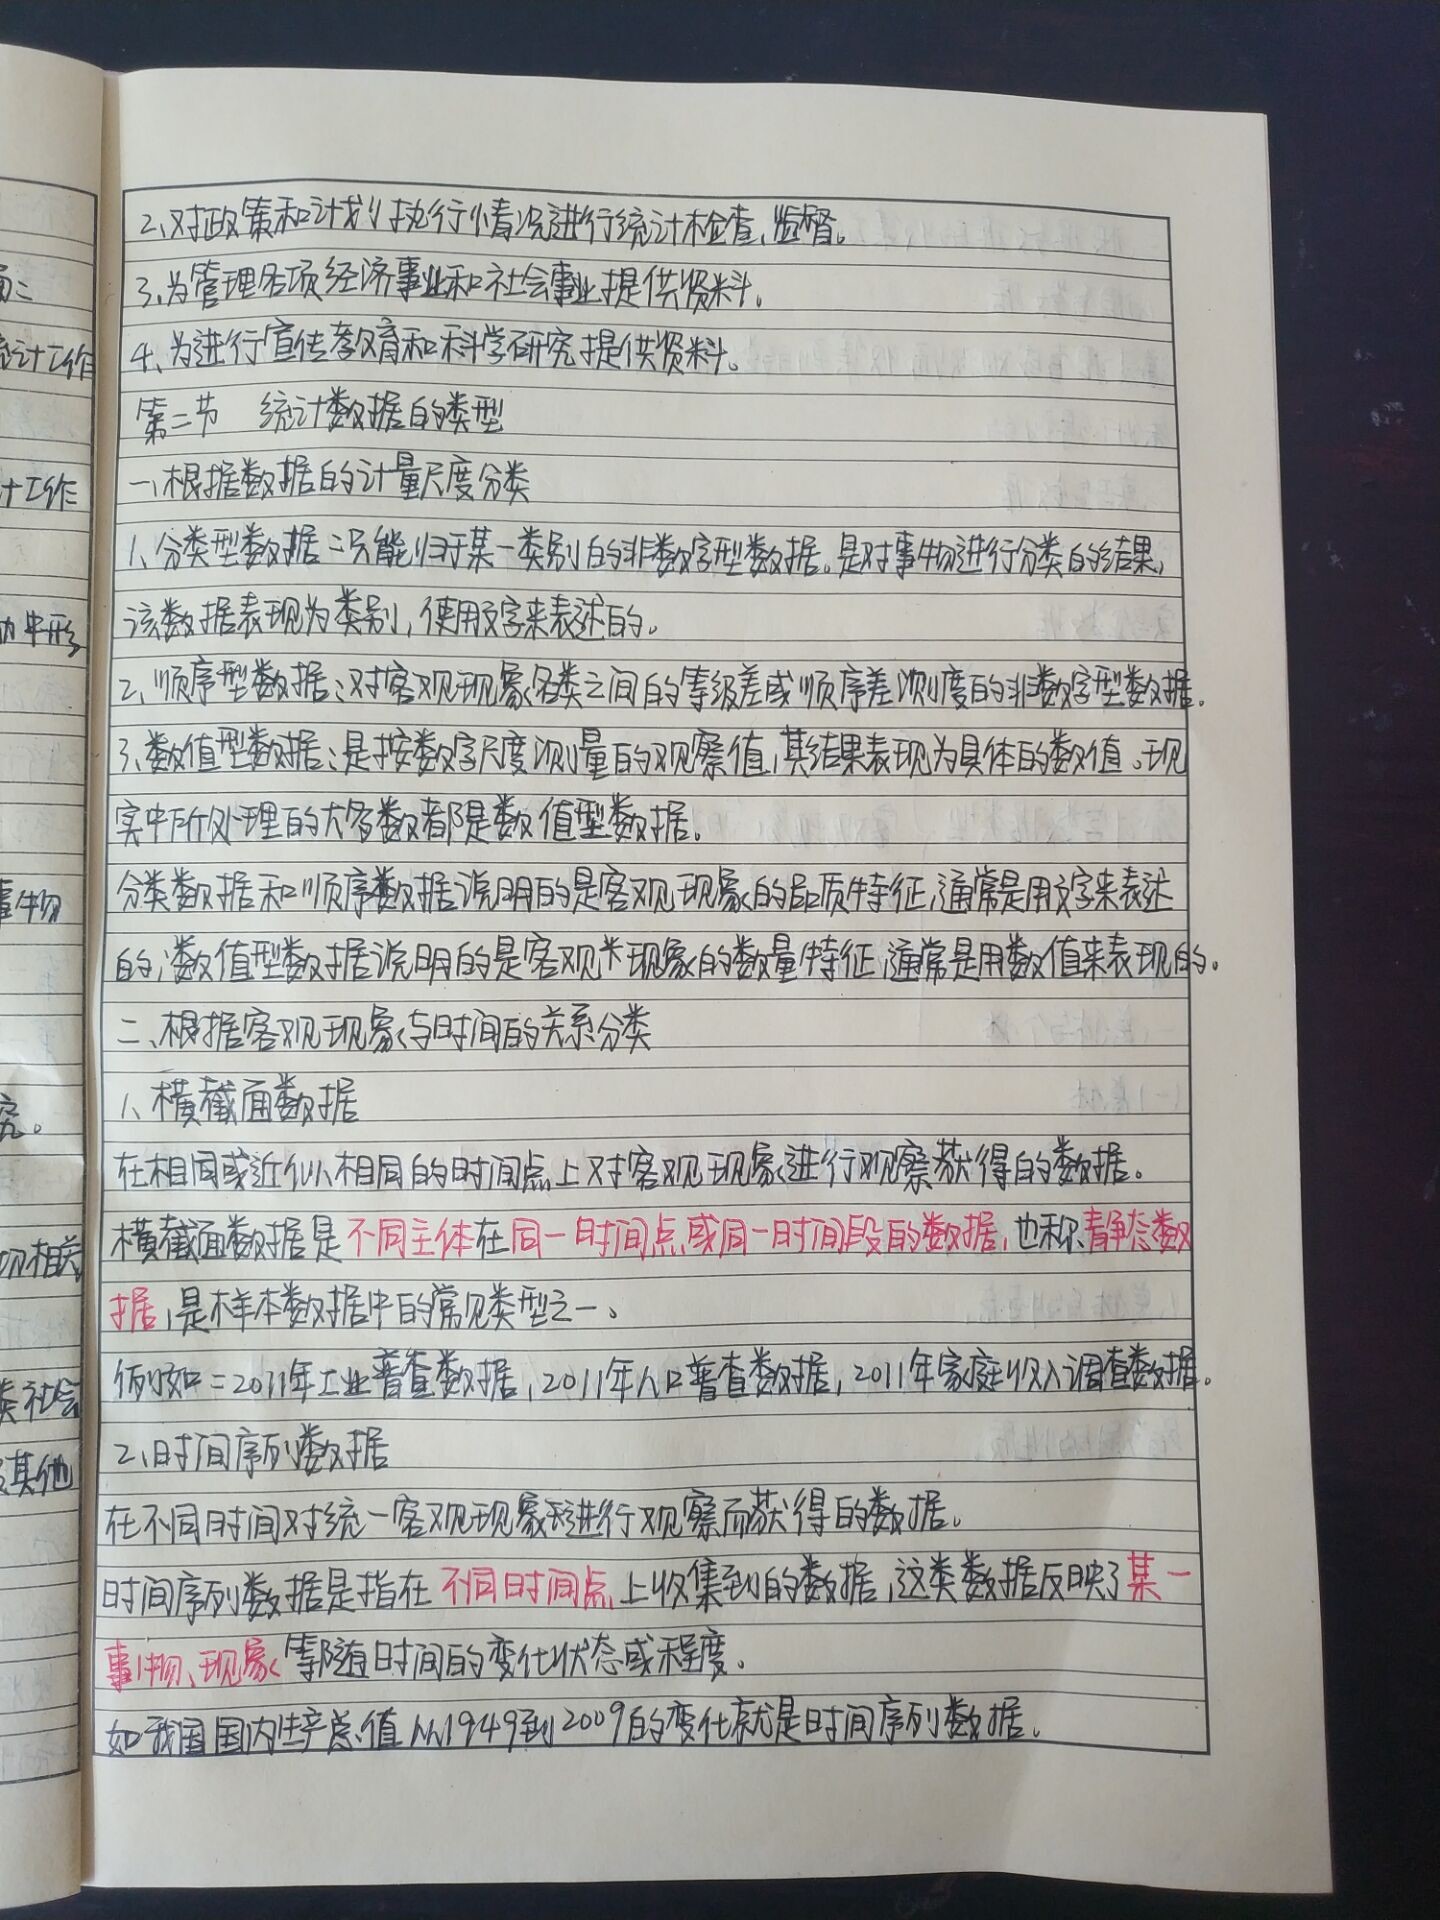 2、对政策和计划执行情况进行统计检查、监督。
3、为管理各项经济事业和社会事业提供资料。
4、为进行宣传教育和科学研究提供资料。
第二节 统计数据的类型
一、根据数据的计量尺度分类
1、分类型数据：只能归于某一类别的非数字型数据。是对事物进行分类的结果,
该数据表现为类别，使用文字来表述的。
2、顺序型数据：对客观现象各类之间的等级差或顺序差测度的非数字型数据.
3、数值型数据：是按数字尺度测量的观察值，其结果表现为具体的数值。现
实中所处理的大多数都是数值型数据。
分类数据和顺序数据说明的是客观现象的品质特征，通常是用文字来表述
的；数值型数据说明的是客观现象的数量特征，通常是用数值来表现的。
二、根据客观现象与时间的关系分类
1、横截面数据
在相同或近似相同的时间点上对客观现象进行观察获得的数据。
横截面数据是不同主体在同一时间点或同一时间段的数据，也称静态数
据，是样本数据中的常见类型之一。
例如：2011年工业普查数据，2011年人口普查数据，2011年家庭收入调查数据。
2、时间序列数据
在不同时间对统一客观现象进行观察而获得的数据。
时间序列数据是指在不同时间点上收集到的数据，这类数据反映了某一
事物、现象等随时间的变化状态或程度。
如我国国内生产总值从1949到2009的变化就是时间序列数据。
面：
计工作
计工作
中形
事物
究。
切相关
类社会
其他